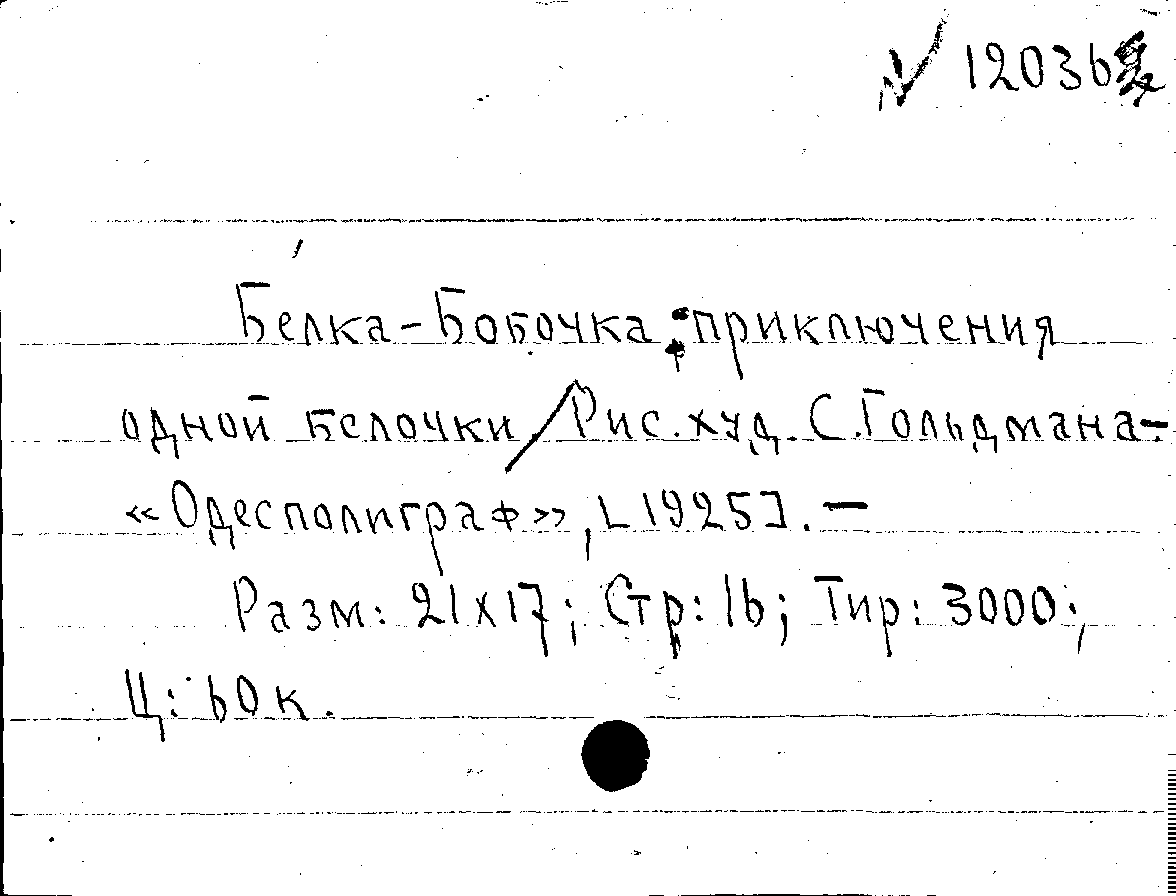 № 12036
Белка-Бобочка: приключения
одной белочки / Рис. худ. С. Гольдмана-
«Одесполиграф», [1925]. —
Разм: 21x17; Стр: 16; Тир: 3000;
Ц: 60 к.